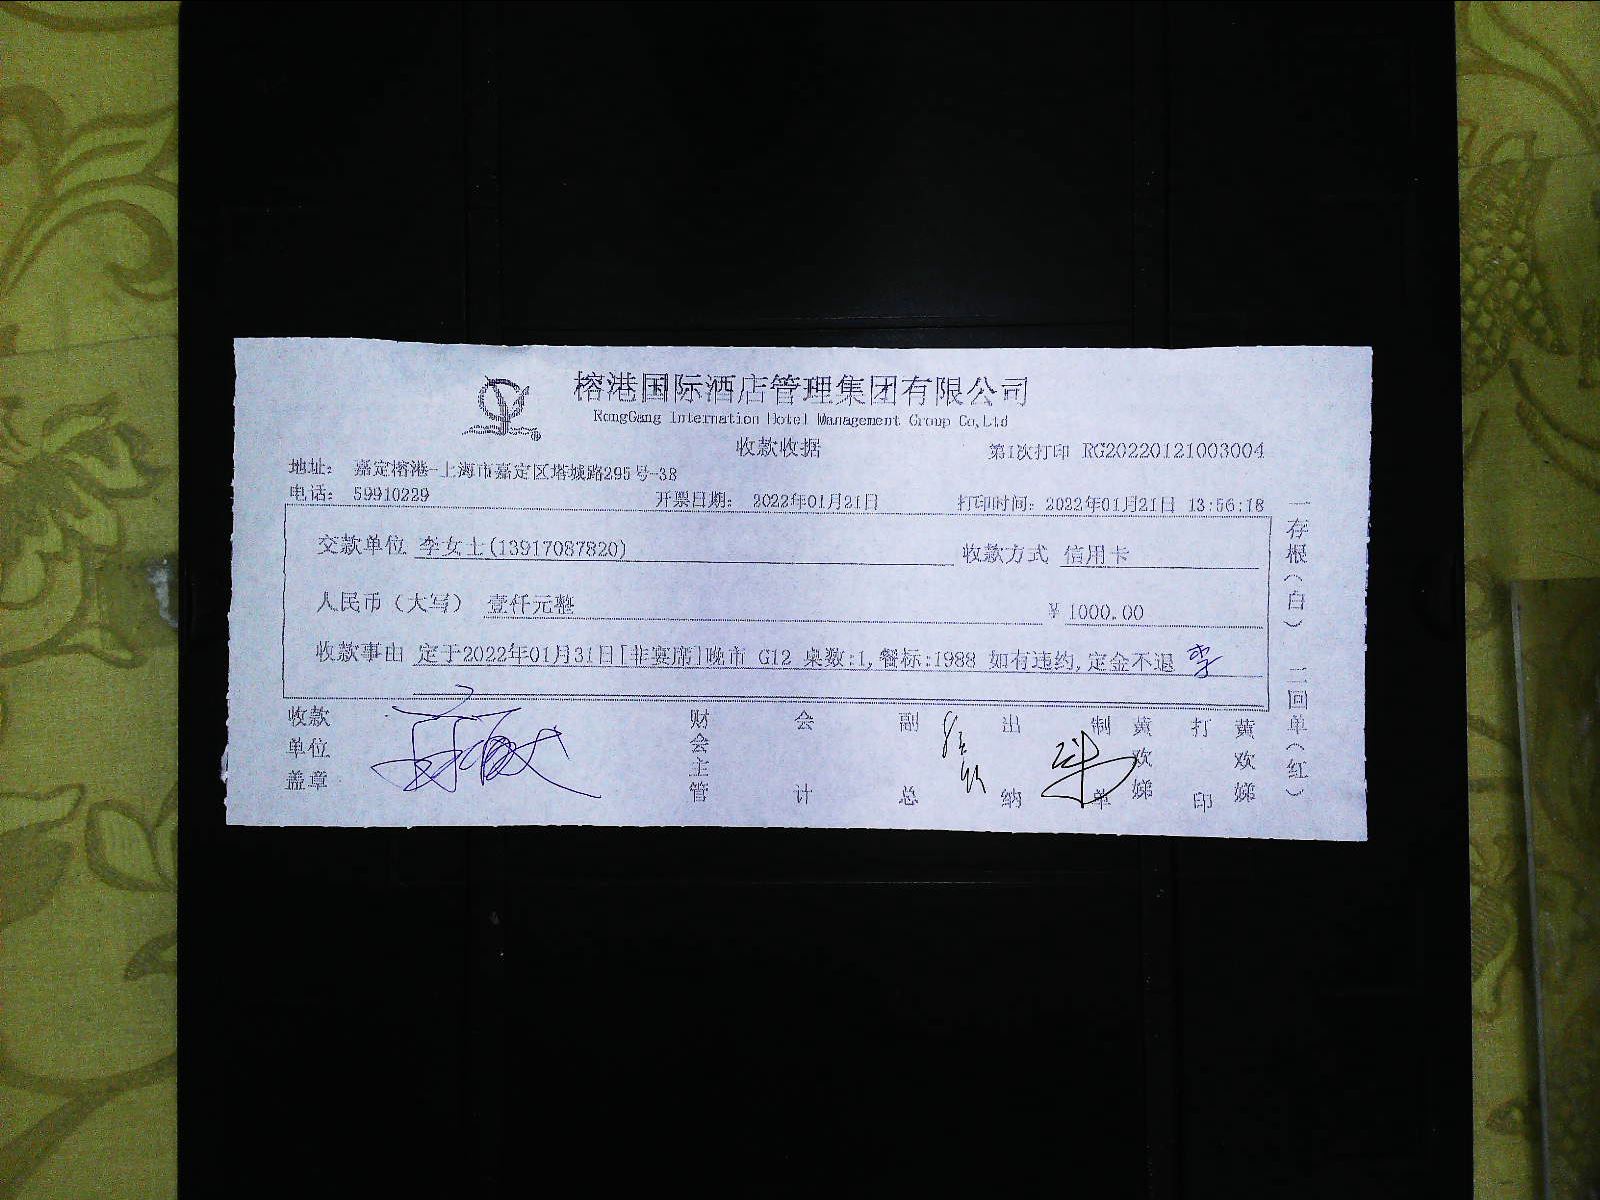 榕港国际酒店管理集团有限公司
RongGang Internation Hotel Management Group Co,Ltd
收款收据
第1次打印 RG20220121003004
地址： 嘉定榕港-上海市嘉定区塔城路295号-38
电话： 59910229
开票日期： 2022年01月21日
打印时间： 2022年01月21日 13:56:18
交款单位 李女士(13917087820)
收款方式 信用卡
人民币（大写） 壹仟元整
￥ 1000.00
收款事由 定于2022年01月31日[非宴席]晚市 G12 桌数:1,餐标:1988 如有违约,定金不退 李
收款单位盖章
财会主管
会计
副总
出纳
制单 黄欢娣
打印 黄欢娣
一存根（白） 二回单（红）